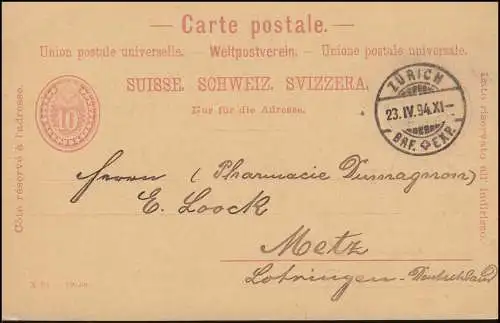 — Carte postale. —
Union postale universelle. — Weltpostverein. — Unione postale universale.
SUISSE. SCHWEIZ. SVIZZERA.
Nur für die Adresse.
Côté réservé à l'adresse.
10
ZÜRICH
23.IV.94.XI—
BRF. EXP.
Lato riservato all'indirizzo.
Herrn (Pharmacie Dumagnon)
E. Loock
Metz
Lotringen - Deutschland